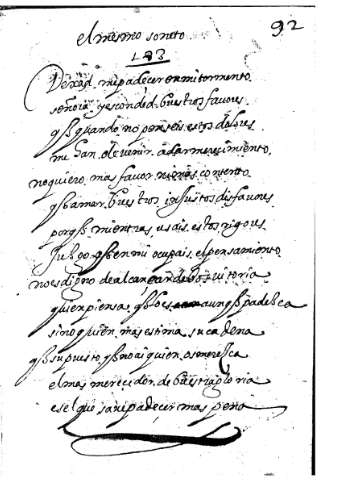 92
el mismo soneto
183
Dexad mi padecer en mi tormento
señora, y esconded buestros fabores
q̃ quando no penseis estos dolores
me han de venir a dar merecimiento
no quiero mas fabor contento
q̃ amar buestros disfabores
porq̃ mientras usais estos rigores
q̃ en mi ocupais el pensamiento
no es digno de alcançar de bos vitoria
quien piensa q̃ aunq̃ padezca
sino quien mas estima su cadena
q̃ supuesto q̃ no ai quien os merezca
el mas merecedor de buestra gloria
es el que save padecer mas pena